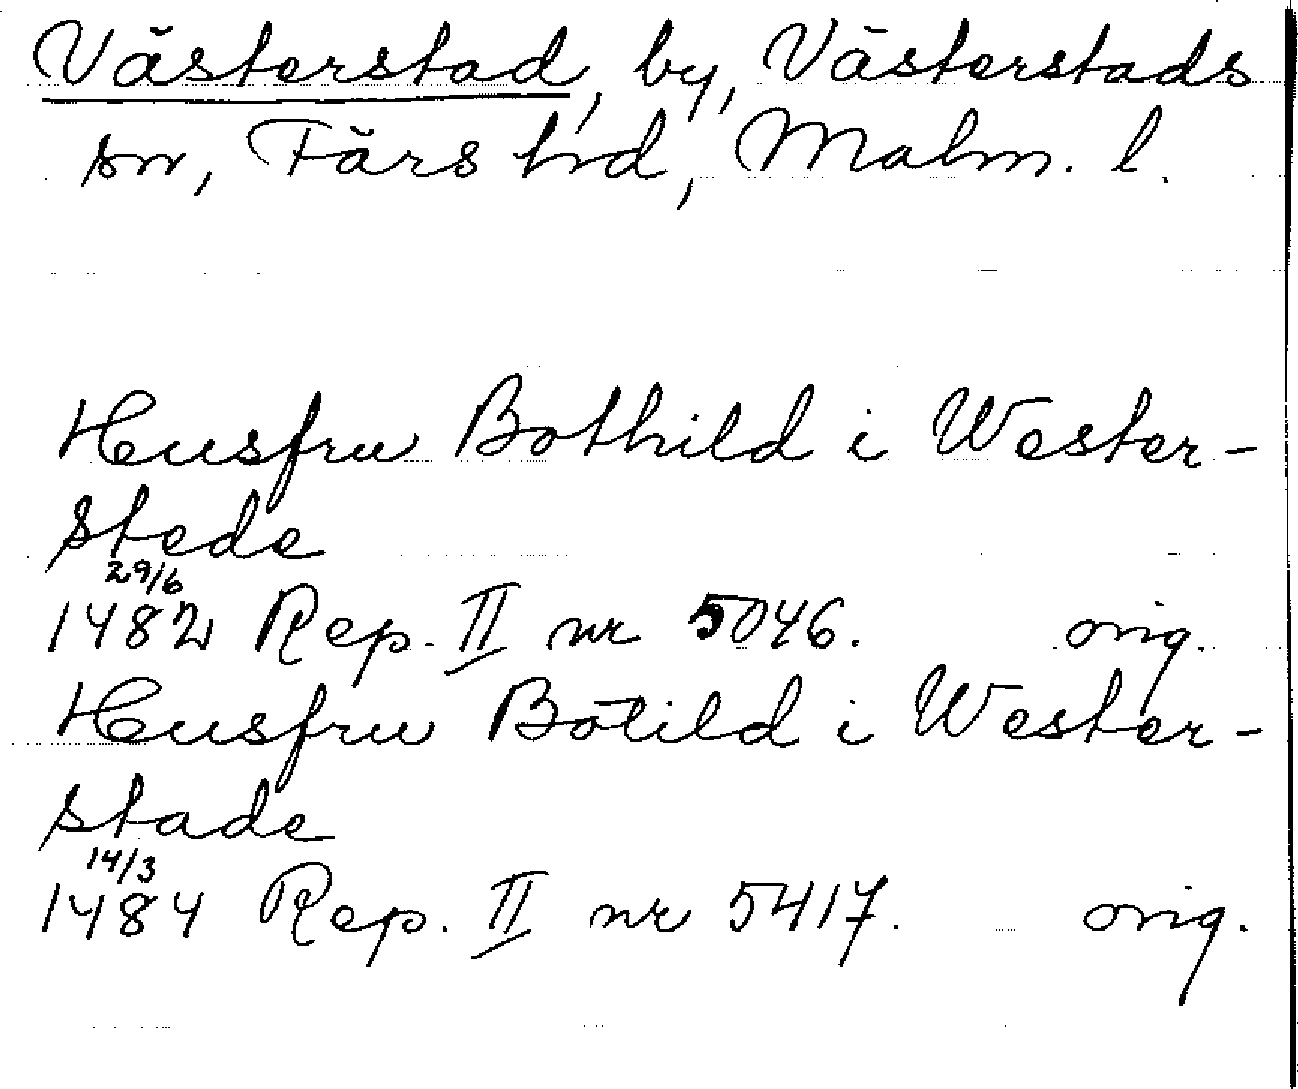 Västerstad, by, Västerstads
sn, Färs hd, Malm. l.
Husfru Bothild i Wester-
stede
29/6
1482 Rep. II nr 5046. orig.
Husfru Botild i Wester-
stade
14/3
1484 Rep. II nr 5417. orig.